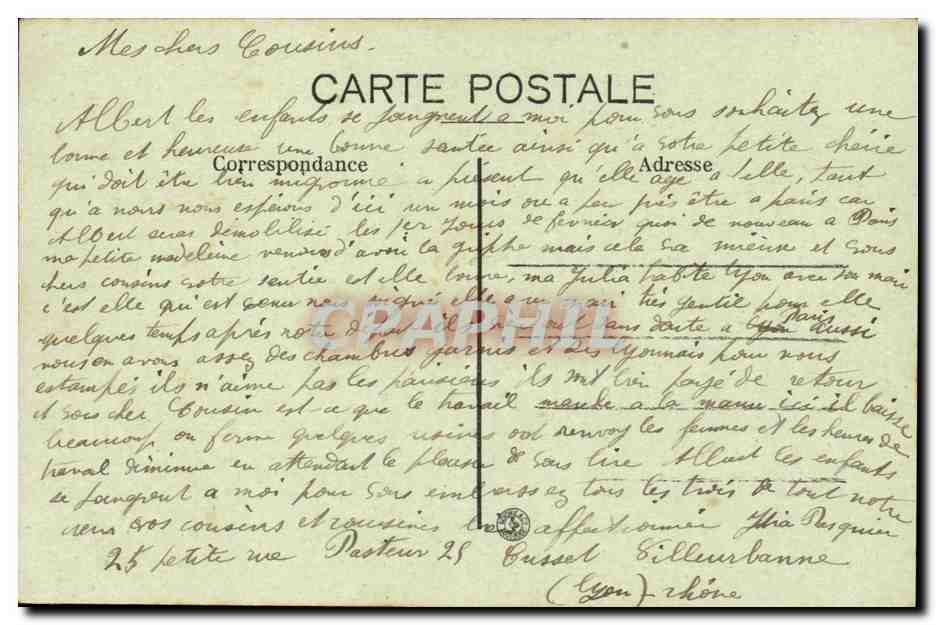 Mes chers Cousins.
CARTE POSTALE
Albert les enfants se joingnent a moi pour vous souhaitez une
bonne et heureuse une bonne santée ainsi qu'a votre petite chérie
Correspondance
Adresse
qui doit être bien mignonne a présent qu'elle age a t'elle, tant
qu'a nous nous espérons d'ici un mois ou a peu près être a paris car
Albert seras démobilisé les 1er Jours de février quoi de nouveau a Paris
ma petite madeleine venons d'avoir la grippe mais cela va mieuse et vous
chers cousins votre santée est elle bonne, ma Julia habite Lyon avec son mari
c'est elle qui est elle a un mari très gentil pour elle
quelques temps après notre ils sans doute a Paris aussi
nous en avons assez des chambres garnis et les Lyonnais pour nous
estampés ils n'aime pas les parisiens ils m'ont bien payé de retour
et vous cher Cousin est-ce que le travail marche a la manu ici il baisse
beaucoup on ferme quelques usines renvoy les femmes et les heures de
traval diminue en attendant le plaisir de vous lire Albert les enfants
se joingnent a moi pour vous embrassez tous les trois de tout notre
cœur vos cousins et cousines affectionnés Pasquier
25 petite rue Pasteur 25 Cusset Villeurbanne
(Lyon) rhône
CPAPHIL